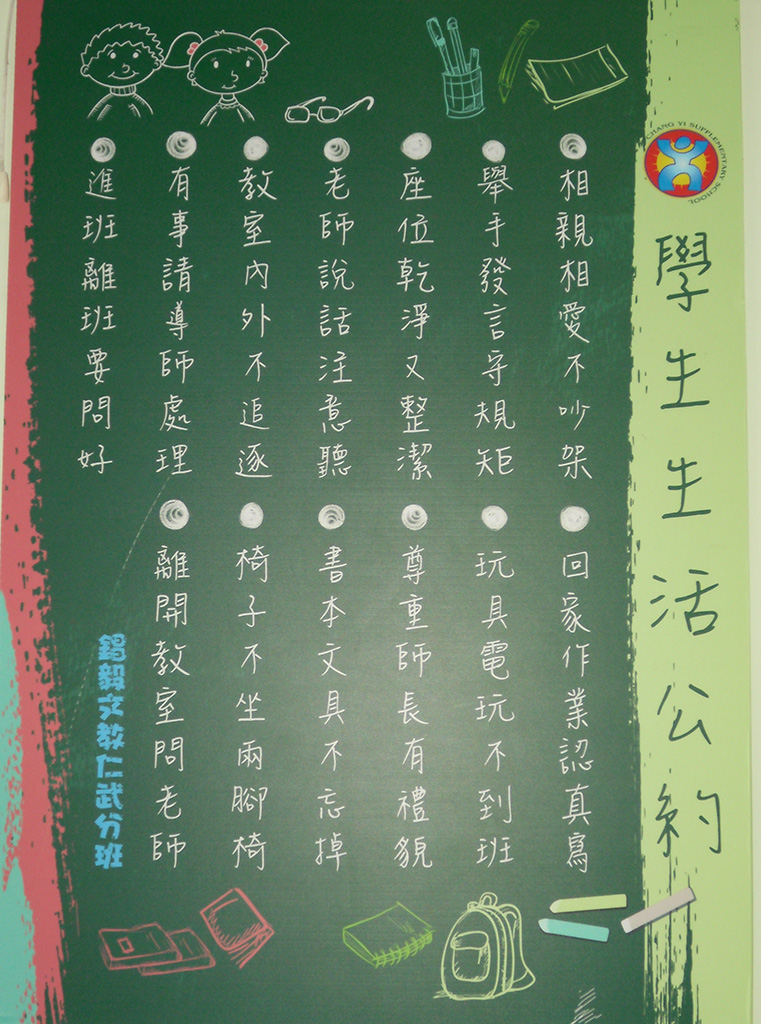 CHANG YI SUPPLEMENTARY SCHOOL
學生生活公約
相親相愛不吵架
舉手發言守規矩
座位乾淨又整潔
老師說話注意聽
教室內外不追逐
有事請導師處理
進班離班要問好
回家作業認真寫
玩具電玩不到班
尊重師長有禮貌
書本文具不忘掉
椅子不坐兩腳椅
離開教室問老師
錩毅文教仁武分班